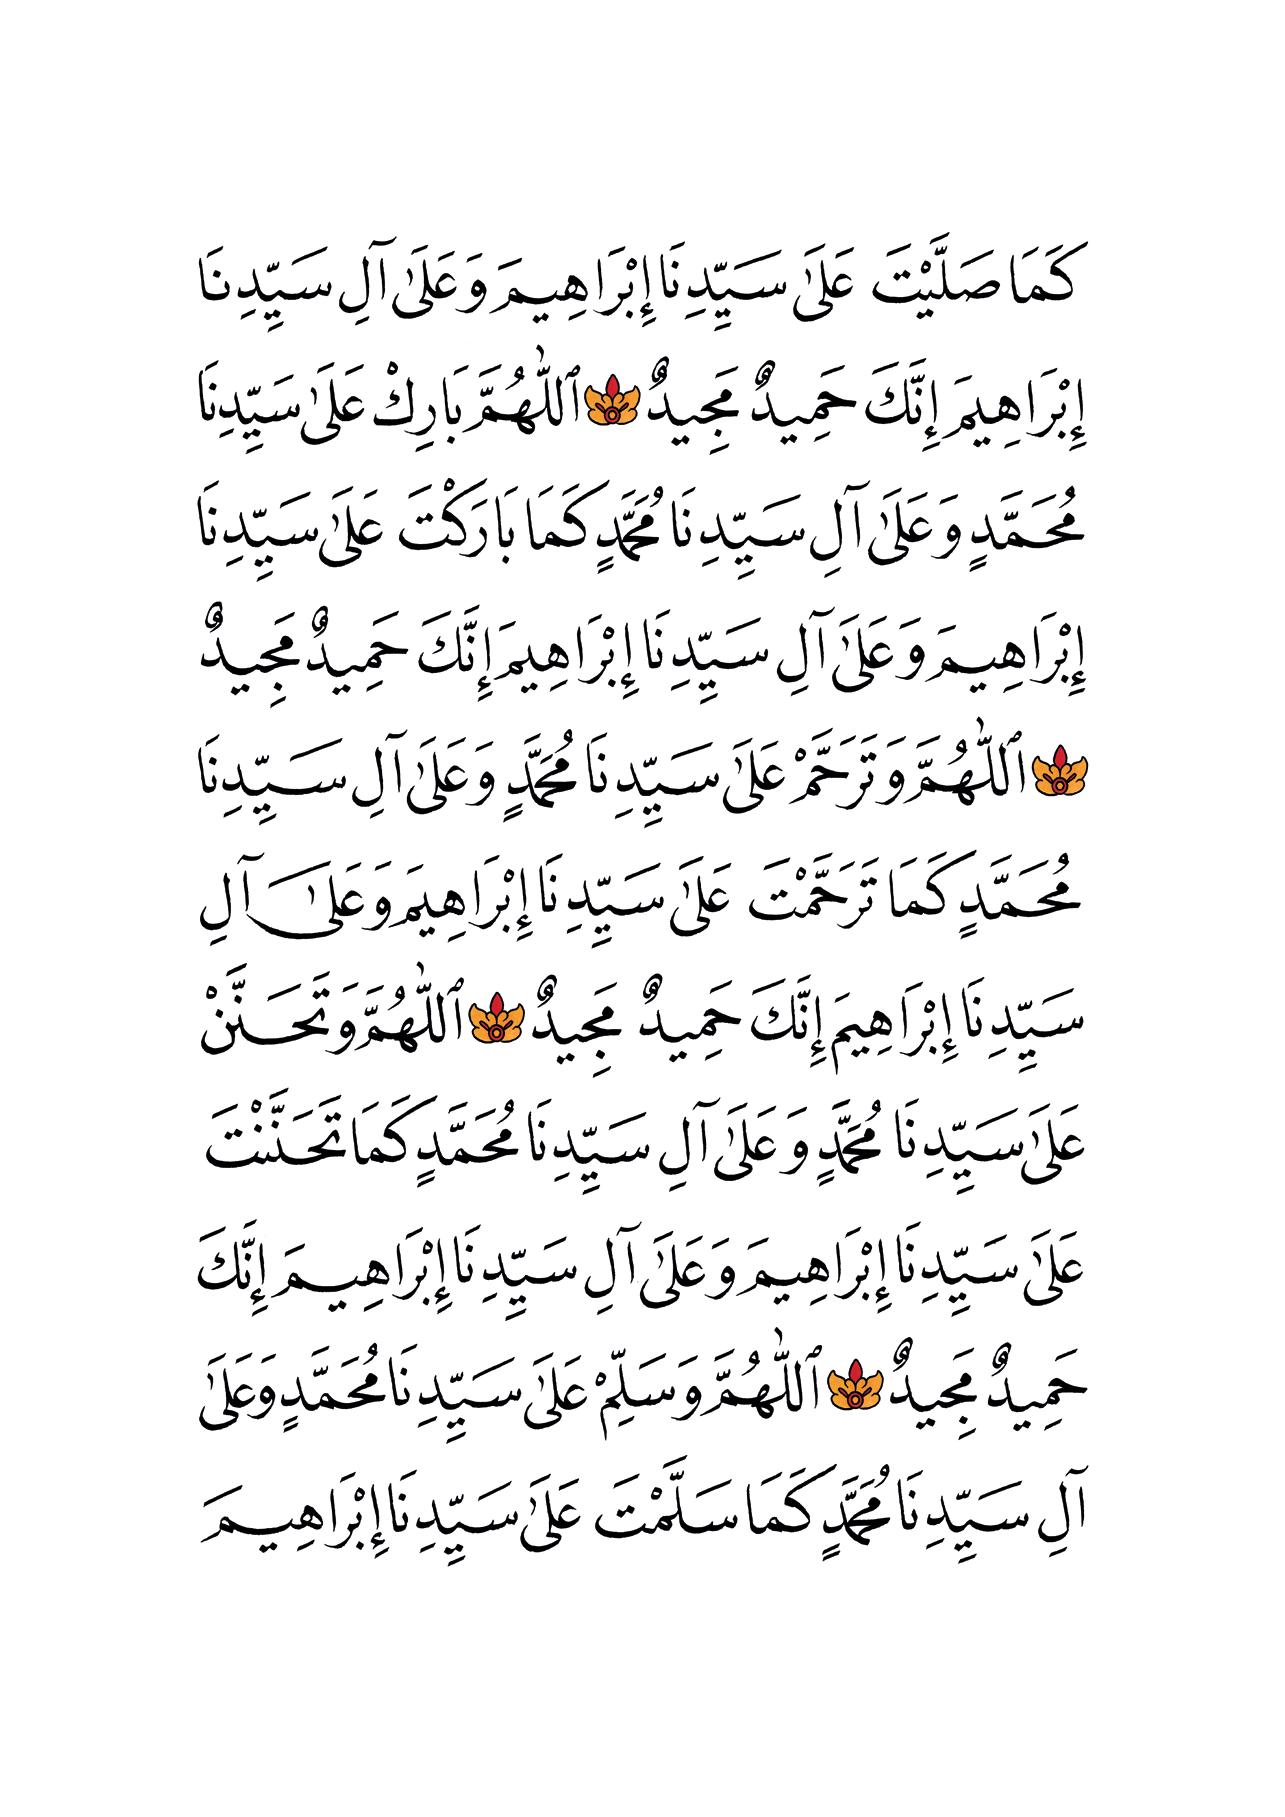 كَمَا صَلَّيْتَ عَلَىٰ سَيِّدِنَا إِبْرَاهِيمَ وَعَلَىٰ آلِ سَيِّدِنَا
إِبْرَاهِيمَ إِنَّكَ حَمِيدٌ مَجِيدٌ ٱللّٰهُمَّ بَارِكْ عَلَىٰ سَيِّدِنَا
مُحَمَّدٍ وَعَلَىٰ آلِ سَيِّدِنَا مُحَمَّدٍ كَمَا بَارَكْتَ عَلَىٰ سَيِّدِنَا
إِبْرَاهِيمَ وَعَلَىٰ آلِ سَيِّدِنَا إِبْرَاهِيمَ إِنَّكَ حَمِيدٌ مَجِيدٌ
ٱللّٰهُمَّ وَتَرَحَّمْ عَلَىٰ سَيِّدِنَا مُحَمَّدٍ وَعَلَىٰ آلِ سَيِّدِنَا
مُحَمَّدٍ كَمَا تَرَحَّمْتَ عَلَىٰ سَيِّدِنَا إِبْرَاهِيمَ وَعَلَىٰ آلِ
سَيِّدِنَا إِبْرَاهِيمَ إِنَّكَ حَمِيدٌ مَجِيدٌ ٱللّٰهُمَّ وَتَحَنَّنْ
عَلَىٰ سَيِّدِنَا مُحَمَّدٍ وَعَلَىٰ آلِ سَيِّدِنَا مُحَمَّدٍ كَمَا تَحَنَّنْتَ
عَلَىٰ سَيِّدِنَا إِبْرَاهِيمَ وَعَلَىٰ آلِ سَيِّدِنَا إِبْرَاهِيمَ إِنَّكَ
حَمِيدٌ مَجِيدٌ ٱللّٰهُمَّ وَسَلِّمْ عَلَىٰ سَيِّدِنَا مُحَمَّدٍ وَعَلَىٰ
آلِ سَيِّدِنَا مُحَمَّدٍ كَمَا سَلَّمْتَ عَلَىٰ سَيِّدِنَا إِبْرَاهِيمَ